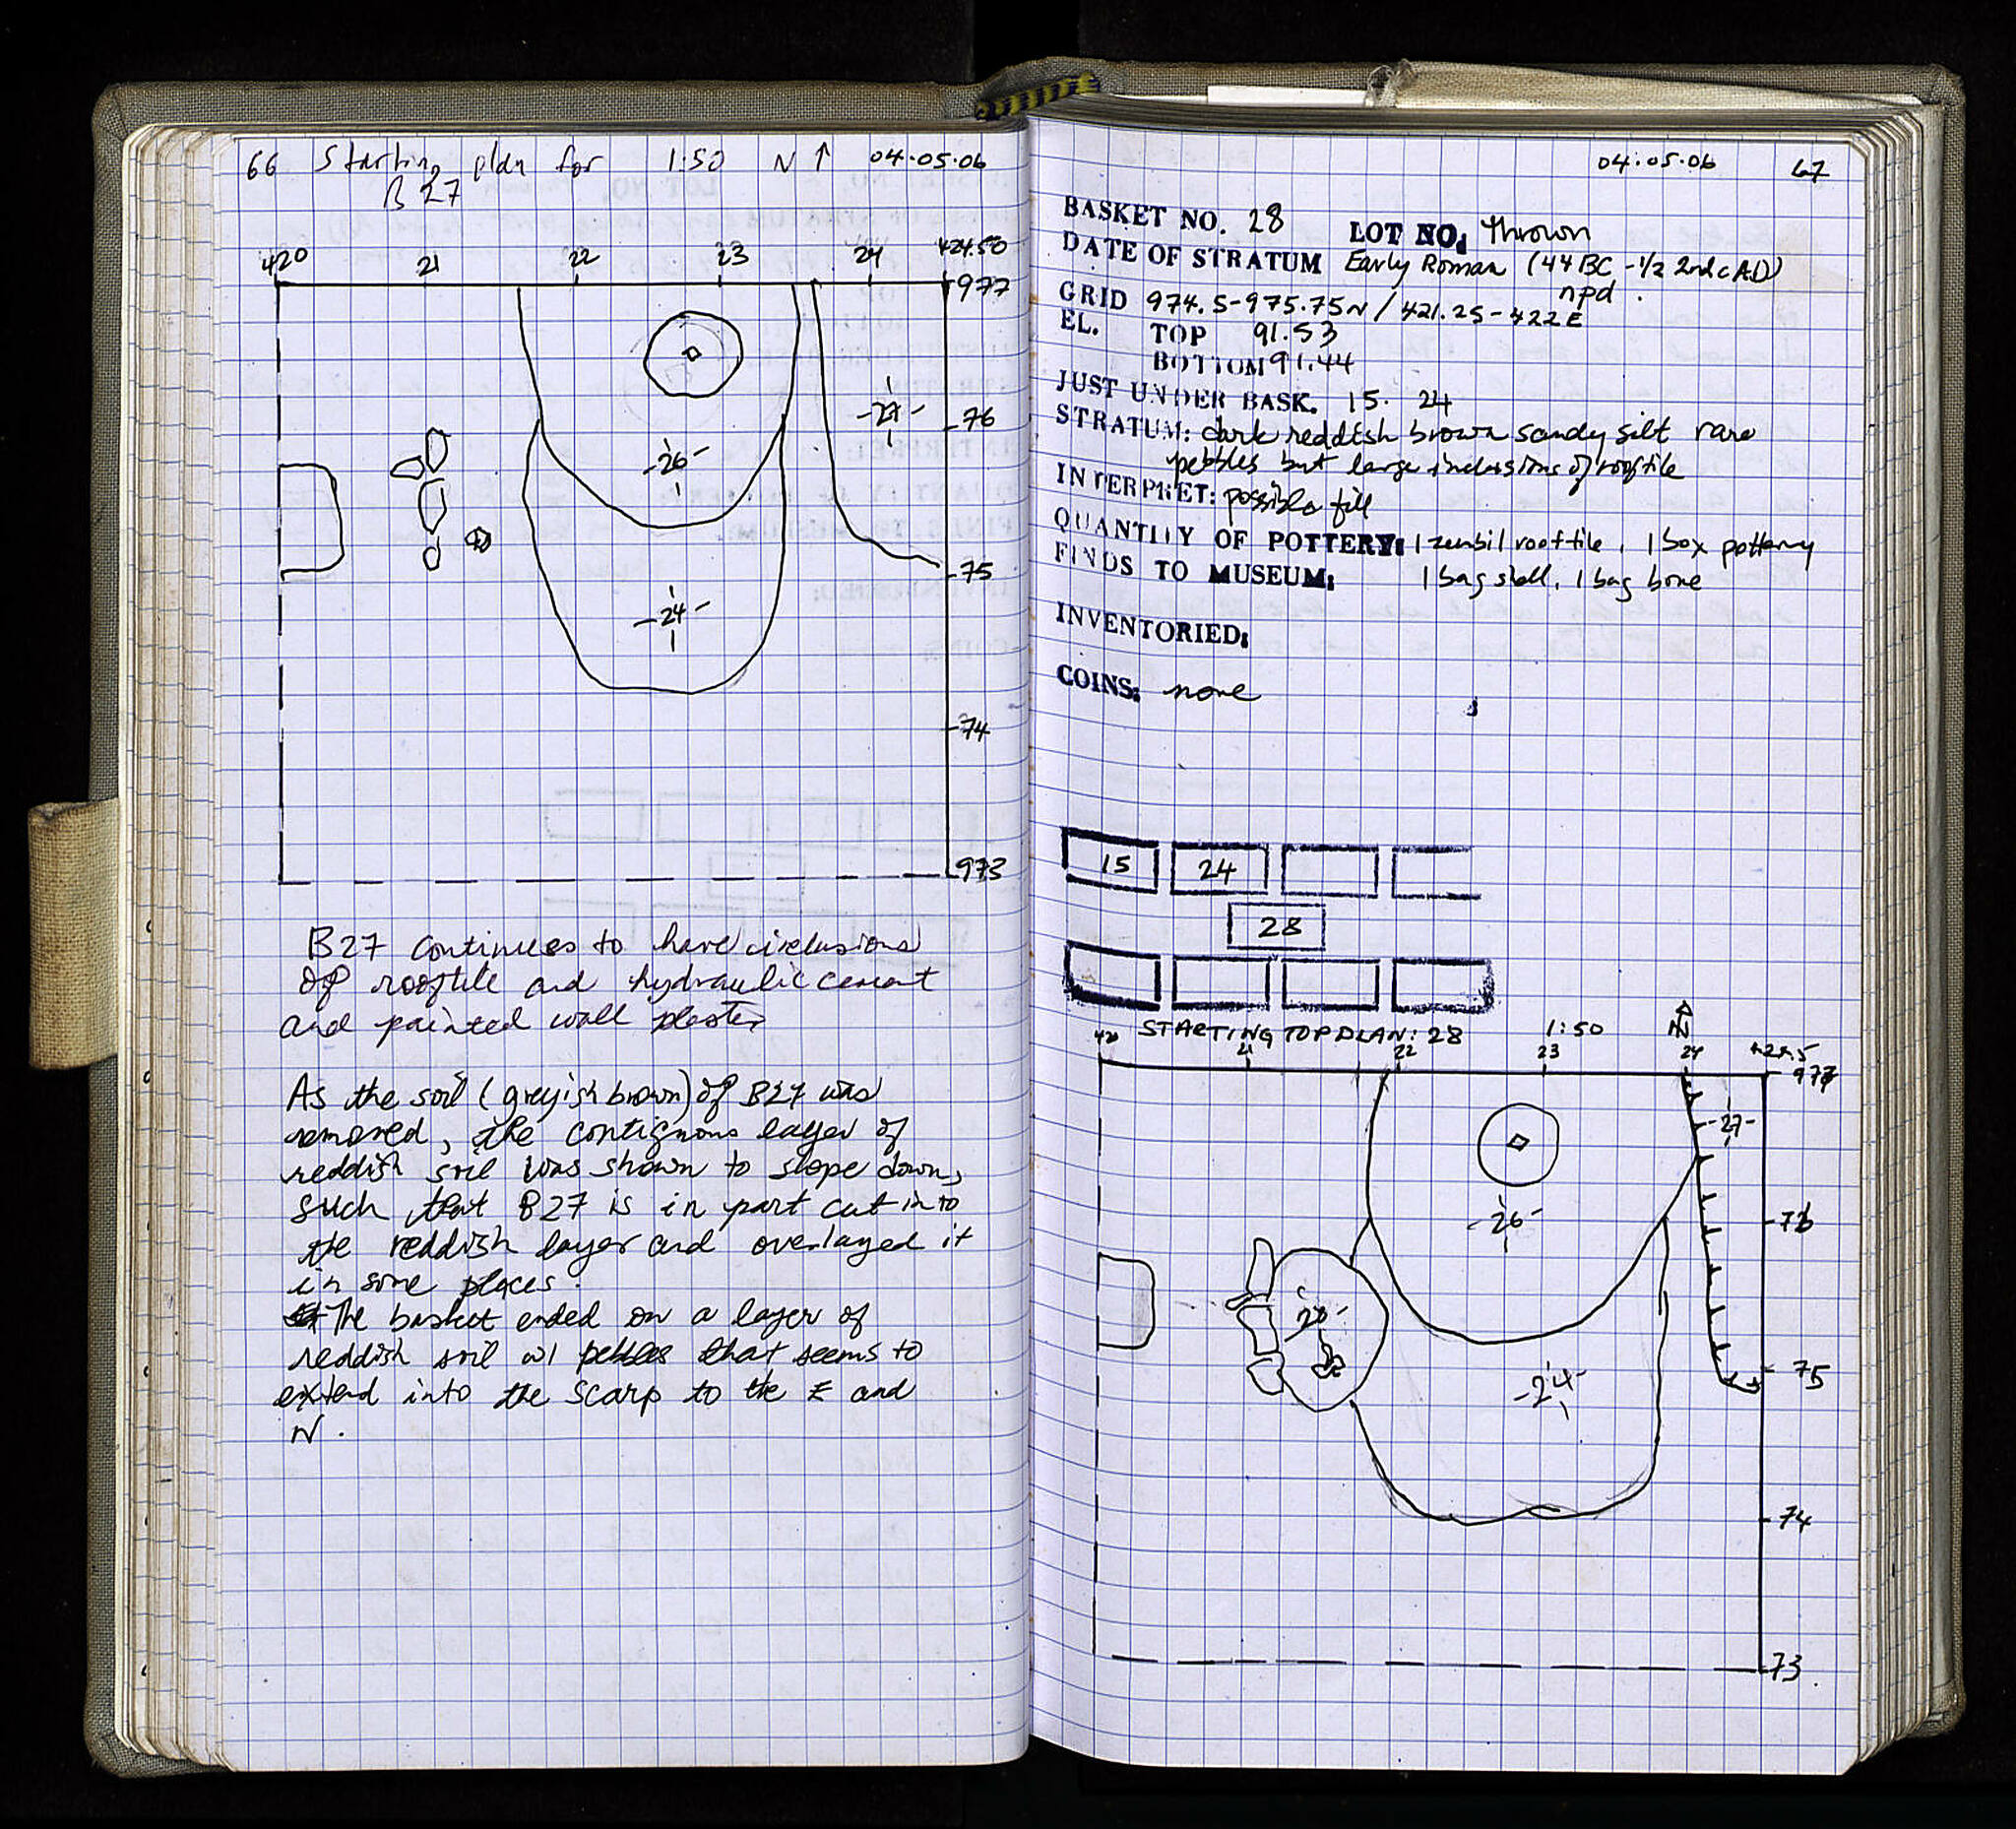 66 Starting plan for 1:50 N ↑ 04.05.06
B 27
420 21 22 23 24 424.50
977
-27-
76
-26-
75
-24-
74
973
B27 continues to have inclusions
of rooftile and hydraulic cement
and painted wall plaster
As the soil (greyish brown) of B27 was
removed, the contiguous layer of
reddish soil was shown to slope down,
such that B27 is in part cut into
the reddish layer and overlayed it
in some places.
The basket ended on a layer of
reddish soil w/ pebbles that seems to
extend into the scarp to the E and
N.
04.05.06 67
BASKET NO. 28 LOT NO: thrown
DATE OF STRATUM Early Roman (44 BC - 1/2 2nd c AD)
npd.
GRID 974.5-975.75N / 421.25-422E
EL. TOP 91.53
BOTTOM 91.44
JUST UNDER BASK. 15. 24
STRATUM: dark reddish brown sandy silt rare
pebbles but large inclusions of rooftile
INTERPRET: possible fill
QUANTITY OF POTTERY: 1 zembil rooftile, 1 box pottery
FINDS TO MUSEUM: 1 bag shell, 1 bag bone
INVENTORIED:
COINS: none
15 24
28
STARTING TOP PLAN: 28 1:50 N
420 21 22 23 24 424.5
977
-27-
-26-
76
-28-
75
-24-
74
73